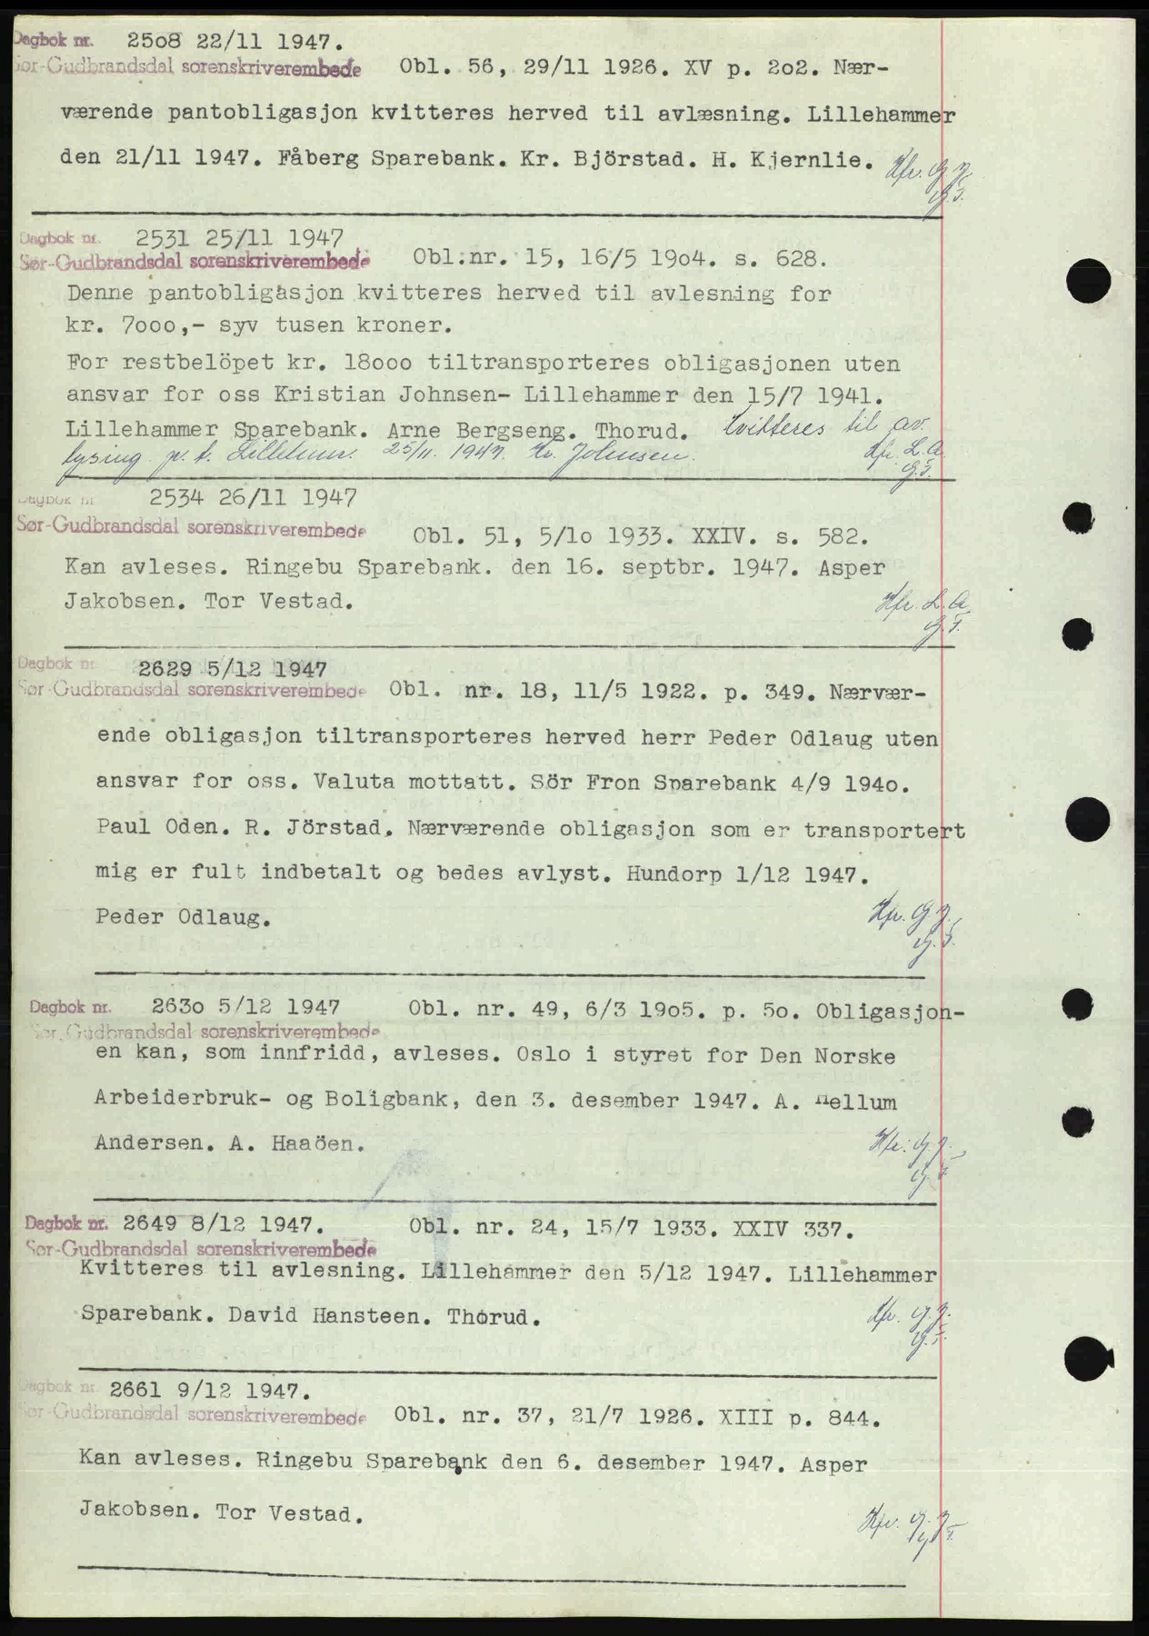 Dagbok nr. 2508 22/11 1947.
Sør-Gudbrandsdal sorenskriverembede Obl. 56, 29/11 1926. XV p. 2o2. Nær-
værende pantobligasjon kvitteres herved til avlæsning. Lillehammer
den 21/11 1947. Fåberg Sparebank. Kr. Björstad. H. Kjernlie.
Dagbok nr. 2531 25/11 1947
Sør-Gudbrandsdal sorenskriverembede Obl.nr. 15, 16/5 19o4. s. 628.
Denne pantobligasjon kvitteres herved til avlesning for
kr. 7ooo,- syv tusen kroner.
For restbelöpet kr. 18ooo tiltransporteres obligasjonen uten
ansvar for oss Kristian Johnsen- Lillehammer den 15/7 1941.
Lillehammer Sparebank. Arne Bergseng. Thorud. Kvitteres til av
lysing p.t. Lilleham. 25/11. 1947. Kr. Johnsen.
Dagbok nr 2534 26/11 1947
Sør-Gudbrandsdal sorenskriverembede Obl. 51, 5/1o 1933. XXIV. s. 582.
Kan avleses. Ringebu Sparebank. den 16. septbr. 1947. Asper
Jakobsen. Tor Vestad.
Dagbok nr 2629 5/12 1947
Sør-Gudbrandsdal sorenskriverembede Obl. nr. 18, 11/5 1922. p. 349. Nærvær-
ende obligasjon tiltransporteres herved herr Peder Odlaug uten
ansvar for oss. Valuta mottatt. Sör Fron Sparebank 4/9 194o.
Paul Oden. R. Jörstad. Nærværende obligasjon som er transportert
mig er fult indbetalt og bedes avlyst. Hundorp 1/12 1947.
Peder Odlaug.
Dagbok nr. 263o 5/12 1947 Obl. nr. 49, 6/3 19o5. p. 5o. Obligasjon-
Sør-Gudbrandsdal sorenskriverembede
en kan, som innfridd, avleses. Oslo i styret for Den Norske
Arbeiderbruk- og Boligbank, den 3. desember 1947. A. Hellum
Andersen. A. Haaöen.
Dagbok nr. 2649 8/12 1947. Obl. nr. 24, 15/7 1933. XXIV 337.
Sør-Gudbrandsdal sorenskriverembede
Kvitteres til avlesning. Lillehammer den 5/12 1947. Lillehammer
Sparebank. David Hansteen. Thorud.
Dagbok nr 2661 9/12 1947.
Sør-Gudbrandsdal sorenskriverembede Obl. nr. 37, 21/7 1926. XIII p. 844.
Kan avleses. Ringebu Sparebank den 6. desember 1947. Asper
Jakobsen. Tor Vestad.